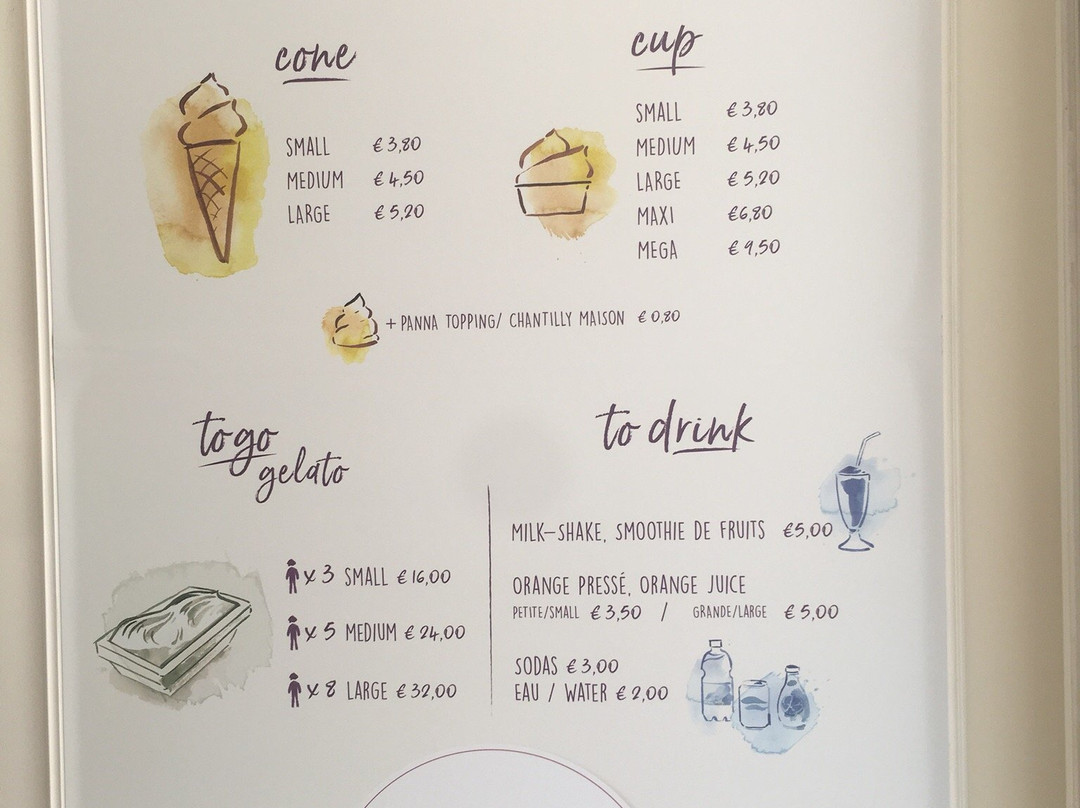 cone
SMALL € 3,80
MEDIUM € 4,50
LARGE € 5,20
cup
SMALL € 3,80
MEDIUM € 4,50
LARGE € 5,20
MAXI €6,80
MEGA € 9,50
+ PANNA TOPPING/ CHANTILLY MAISON € 0,80
to go
gelato
x 3 SMALL € 16,00
x 5 MEDIUM € 24,00
x 8 LARGE € 32,00
to drink
MILK-SHAKE, SMOOTHIE DE FRUITS €5,00
ORANGE PRESSÉ, ORANGE JUICE
PETITE/SMALL € 3,50 / GRANDE/LARGE € 5,00
SODAS € 3,00
EAU / WATER € 2,00